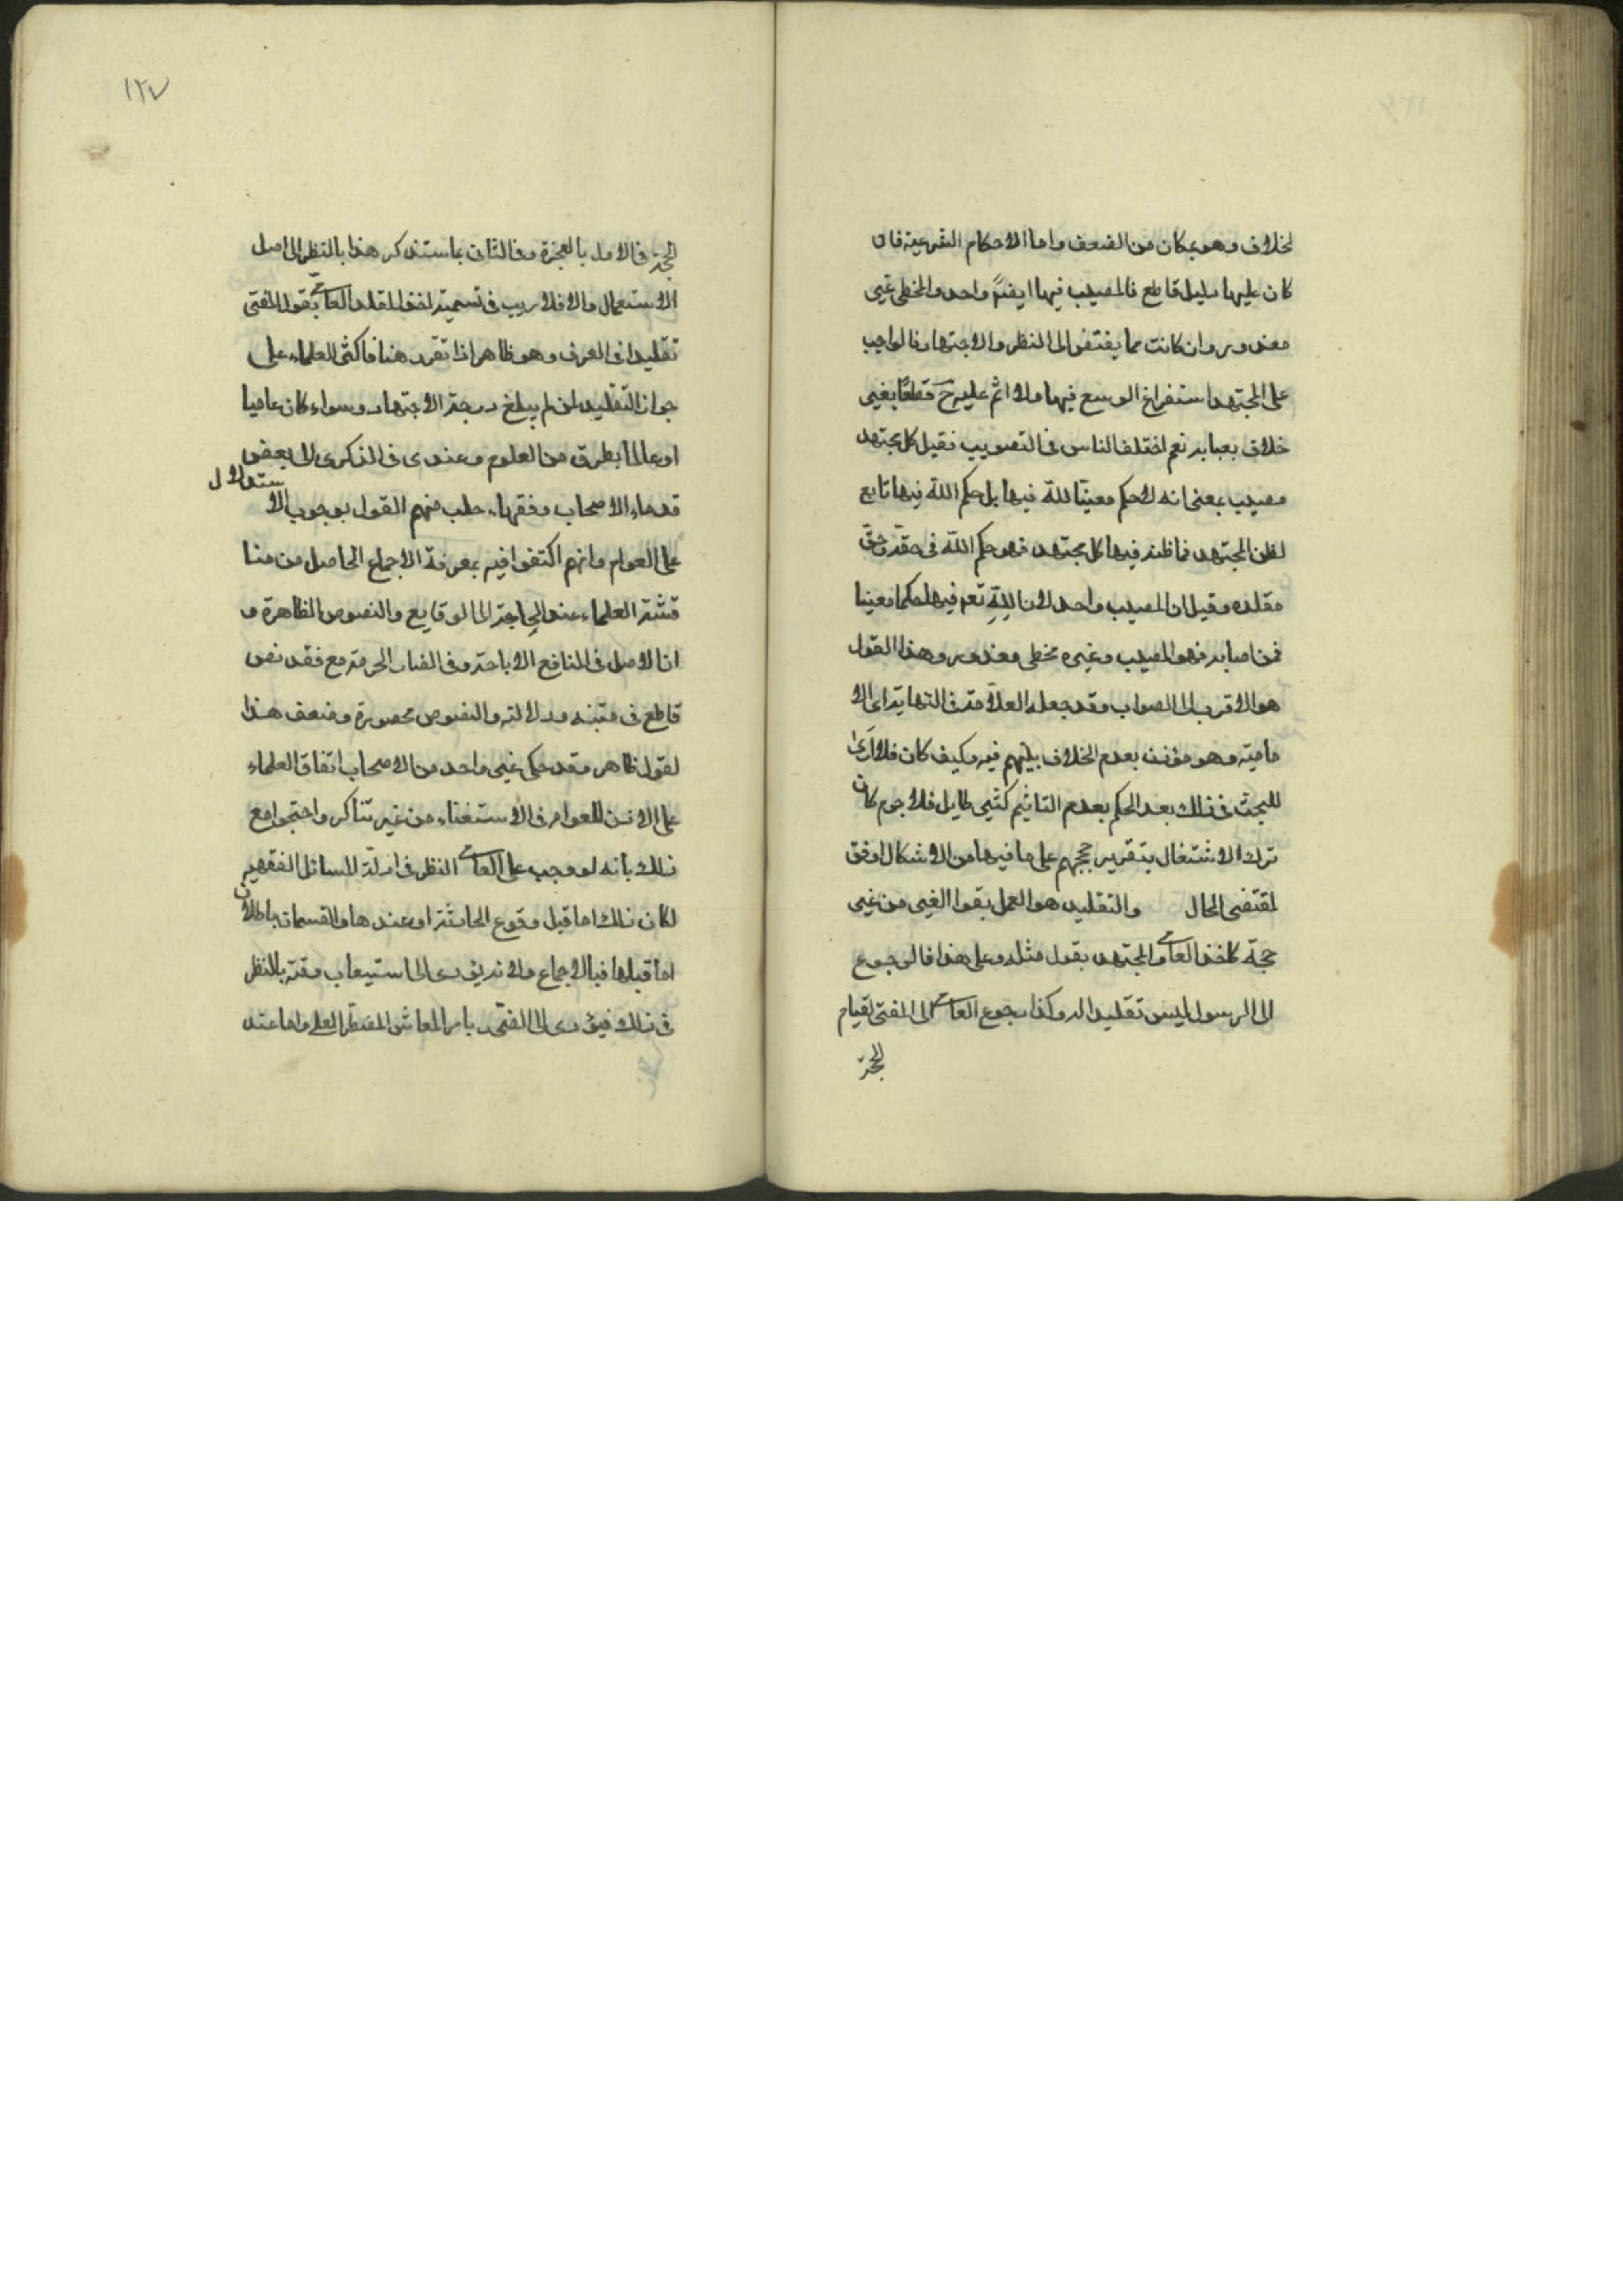 لخلاف وهو بمكان من الضعف واما الاحكام الشرعية فان
كان عليها دليل قاطع فالمصيب فيها ايضاً واحد والمخطى غير
معذور وان كانت مما يفتقر الى النظر والاجتهاد فالواجب
على المجتهد استفراغ الوسع فيها ولا اثم عليه ح قطعًا بغير
خلاف يعبا به نعم اختلف الناس فى التصويب فقيل كل مجتهد
مصيب بمعنى انه لا حكم معينا لله فيها بل حكم الله فيها تابع
لظن المجتهد فما ظنه فيها كل مجتهد فهو حكم الله فى حقه وحق
مقلده وقيل ان المصيب واحد لان لله تع فيها حكما معينا
فمن اصابه فهو المصيب وغيره مخطى معذور وهذا القول
هو الاقرب الى الصواب وقد جعله العلامة فى النهاية راى الا
مامية وهو مؤذن بعدم الخلاف بينهم فيه وكيف كان فلا ارى
للبحث فى ذلك بعد الحكم بعدم التاثيم كثير طايل فلا جرم كان
ترك الاشتغال بتقرير حججهم على ما فيها من الاشكال اوفق
لمقتضى الحال والتقليد هو العمل بقول الغير من غير
حجة كاخذ العامى والمجتهد بقول مثله وعلى هذا فالرجوع
الى الرسول ليس تقليدا له وكذا رجوع العامى الى المفتى لقيام
الحجة
١٢٧
الحجة فى الاول بالمعجزة وفى الثانى بما سنذكر هذا بالنظر الى اصل
الاستعمال والا فلا ريب فى تسمية اخذ المقلد العامى بقول المفتى
تقليدا فى العرف وهو ظاهر اذا تقرر هذا فاكثر العلماء على
جواز التقليد لمن لم يبلغ درجة الاجتهاد وسواء كان عاميا
او عالما بطرف من العلوم وعزى فى الذكرى الى بعض
قدماء الاصحاب وفقهاء حلب منهم القول بوجوب الاستدلال
على العوام وانهم اكتفوا فيه بمعرفة الاجماع الحاصل من منا
قشة العلماء عند الحاجة الى الوقايع والنصوص الظاهرة و
ان الاصل فى المنافع الاباحة وفى المضار الحرمة مع فقد نص
قاطع فى متنه ودلالته والنصوص محصورة وضعف هذا
لقول ظاهر وقد حكى غير واحد من الاصحاب اتفاق العلماء
على الاذن للعوام فى الاستفتاء من غير تناكر واحتجوا مع
ذلك بانه لو وجب على العامى النظر فى ادلة المسائل الفقهية
لكان ذلك اما قبل وقوع الحادثة او عندها والقسمان باطلان
اما قبلها فبالاجماع ولانه يؤدى الى استيعاب وقته بالنظر
فى ذلك فيؤدى الى الضرر بامر المعاش المضطر اليه واما عند